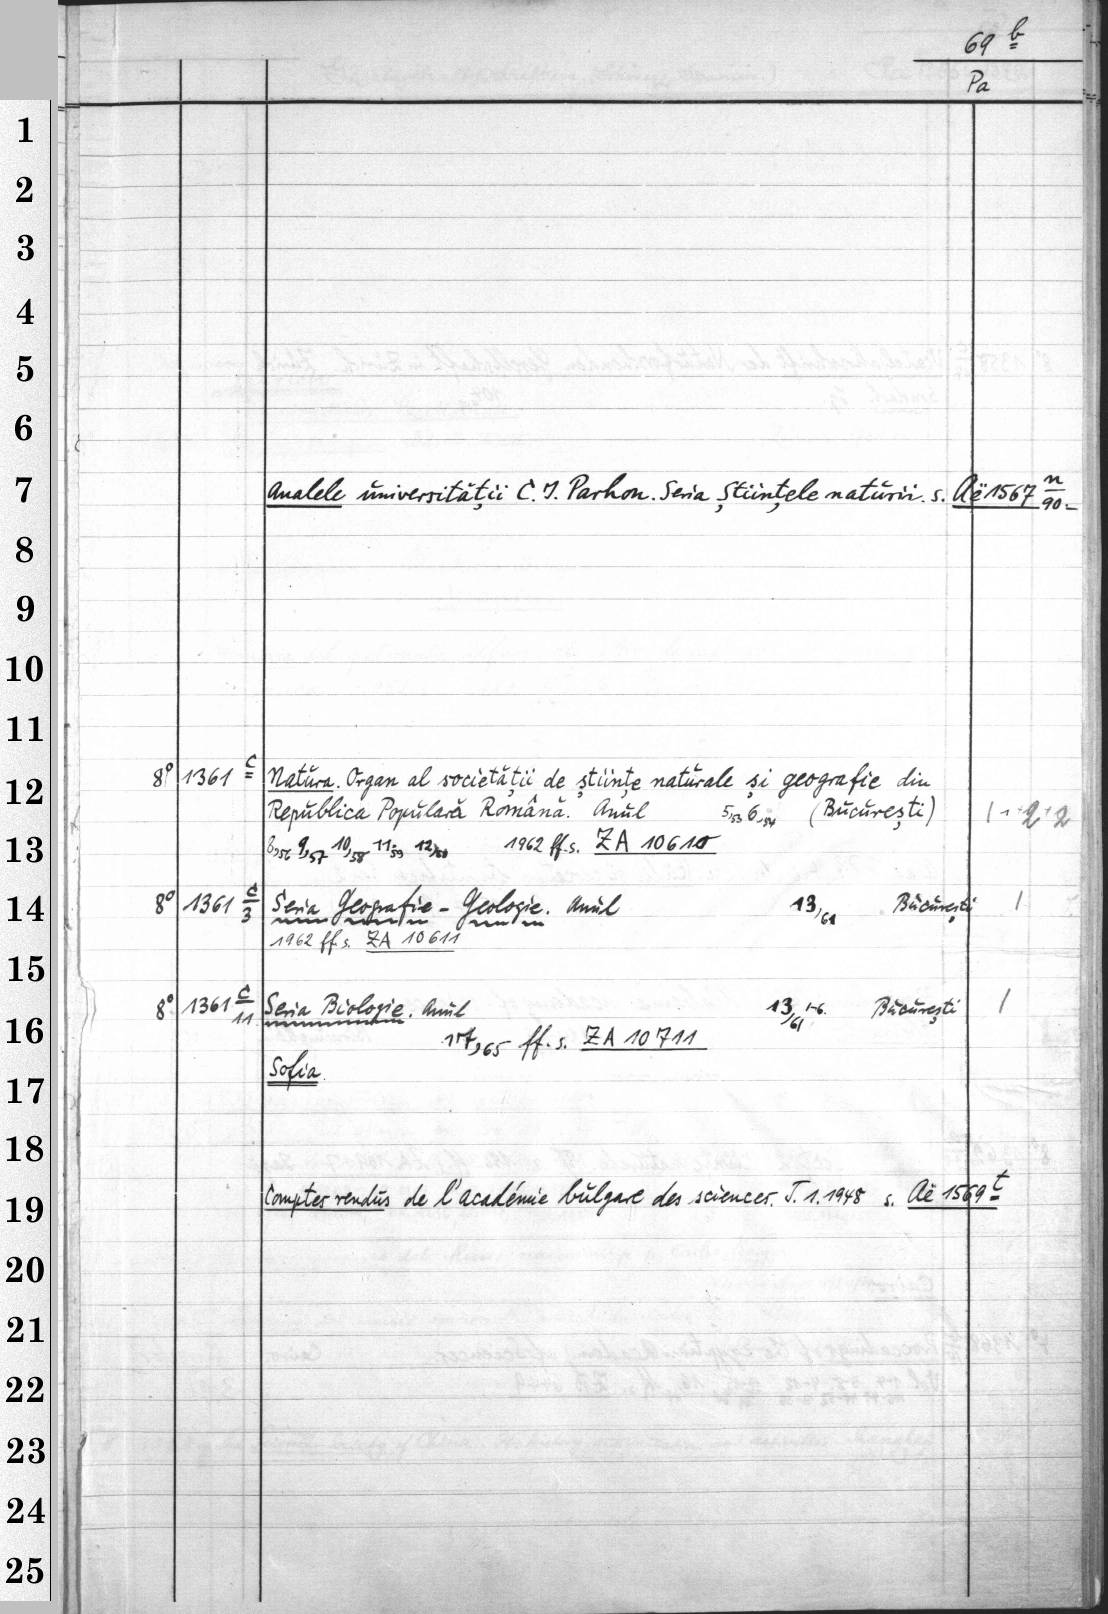 69 b
Pa
1
2
3
4
5
6
7 Analele universității C. I. Parhon. Seria Științele naturii. s. Aë 1567 n/90
8
9
10
11
8° 1361 c Natura. Organ al societății de științe naturale și geografie din
12 Republica Populară Română. Anul 5,53 6,54 (București) 1+2+2
13 8,56 9,57 10,58 11,59 12,60 1962 ff. s. ZA 10610
14 8° 1361 c/3 Seria Geografie - Geologie. Anul 13,61 București 1
1962 ff. s. ZA 10611
15
8° 1361 c/11 Seria Biologie. Anul 13,61 1-6. București 1
16 17,65 ff. s. ZA 10711
17 Sofia.
18
19 Comptes rendus de l'académie bulgare des sciences. T. 1. 1948 s. Aë 1569 t
20
21
22
23
24
25